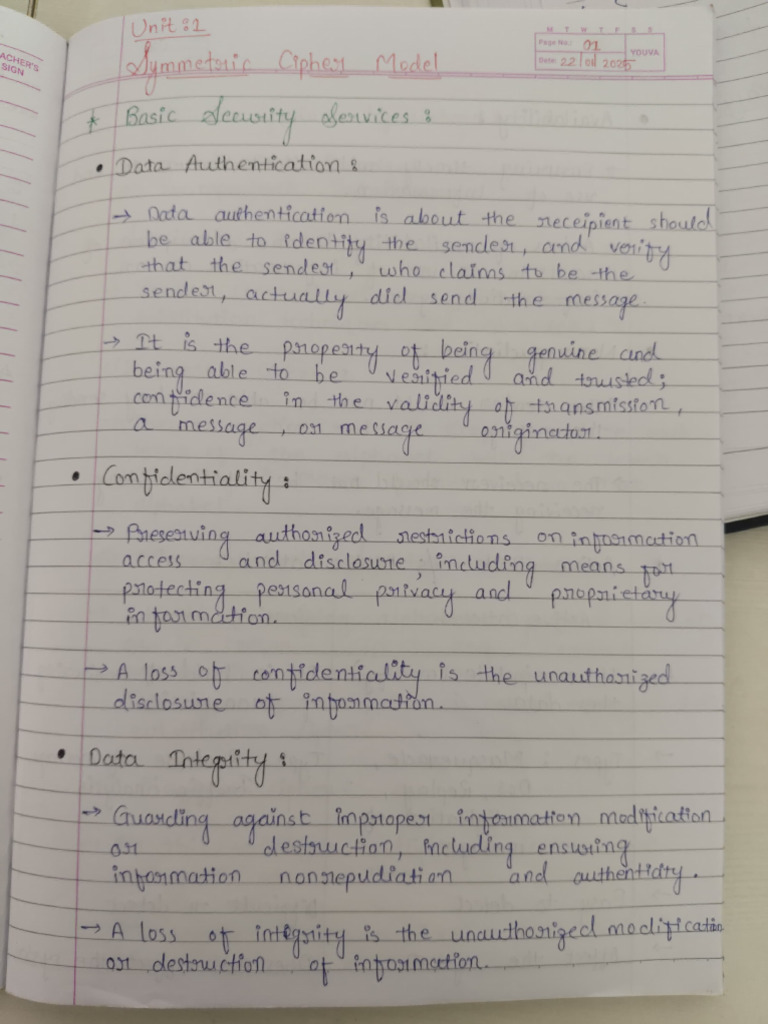 ACHER'S
SIGN
Unit:1
M T W T F S S
Page No.: 01
YOUVA
Date: 22/01/2025
Symmetric Cipher Model
* Basic Security Services:
• Data Authentication:
→ Data authentication is about the receipient should
be able to identify the sender, and verify
that the sender, who claims to be the
sender, actually did send the message.
→ It is the property of being genuine and
being able to be verified and trusted;
confidence in the validity of transmission,
a message, or message originator.
• Confidentiality:
→ Preserving authorized restrictions on information
access and disclosure, including means for
protecting personal privacy and proprietary
information.
→ A loss of confidentiality is the unauthorized
disclosure of information.
• Data Integrity:
→ Guarding against improper information modification
or destruction, including ensuring
information nonrepudiation and authenticity.
→ A loss of integrity is the unauthorized modification
or destruction of information.